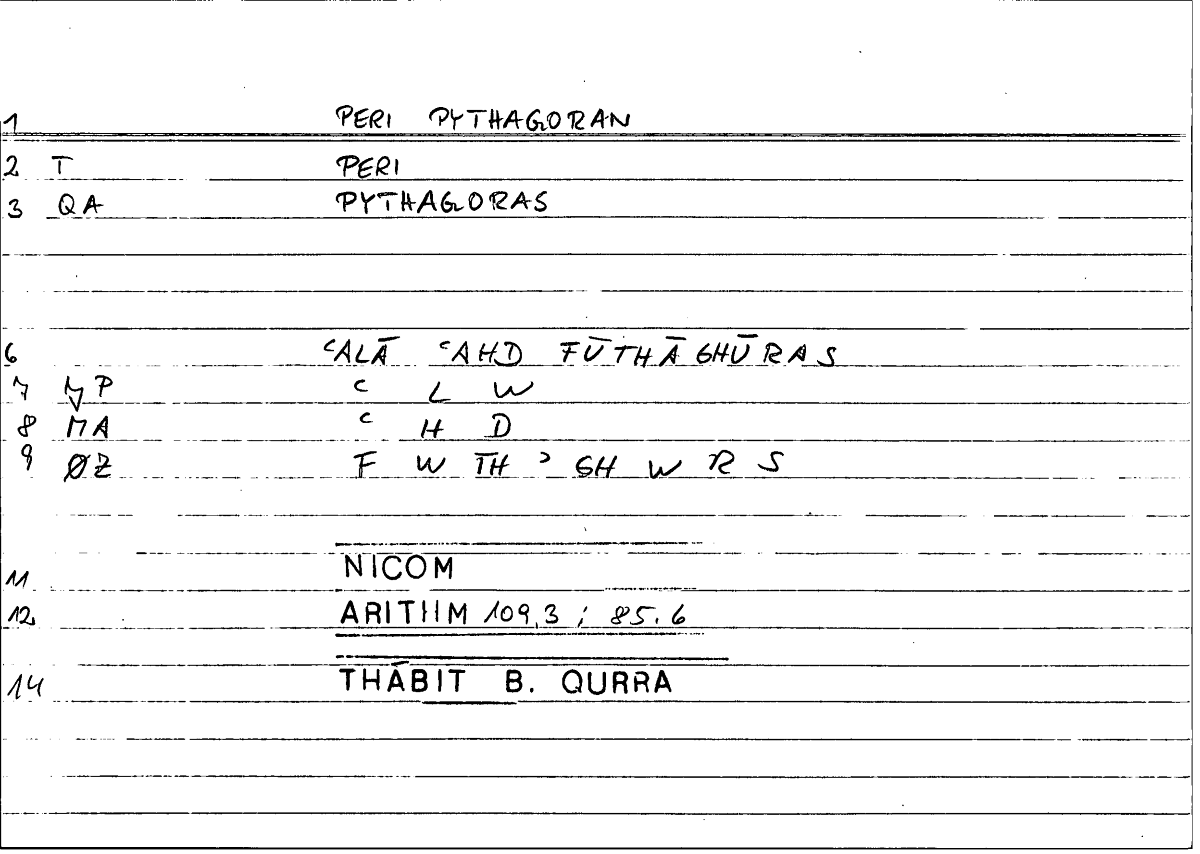 1 PERI PYTHAGORAN
2 T PERI
3 QA PYTHAGORAS
6 ʿALĀ ʿAHD FŪTHĀGHŪRAS
7 P ʿ L W
8 MA ʿ H D
9 ØZ F W TH ʾ GH W R S
11 NICOM
12 ARITHM 109,3 ; 85.6
14 THĀBIT B. QURRA